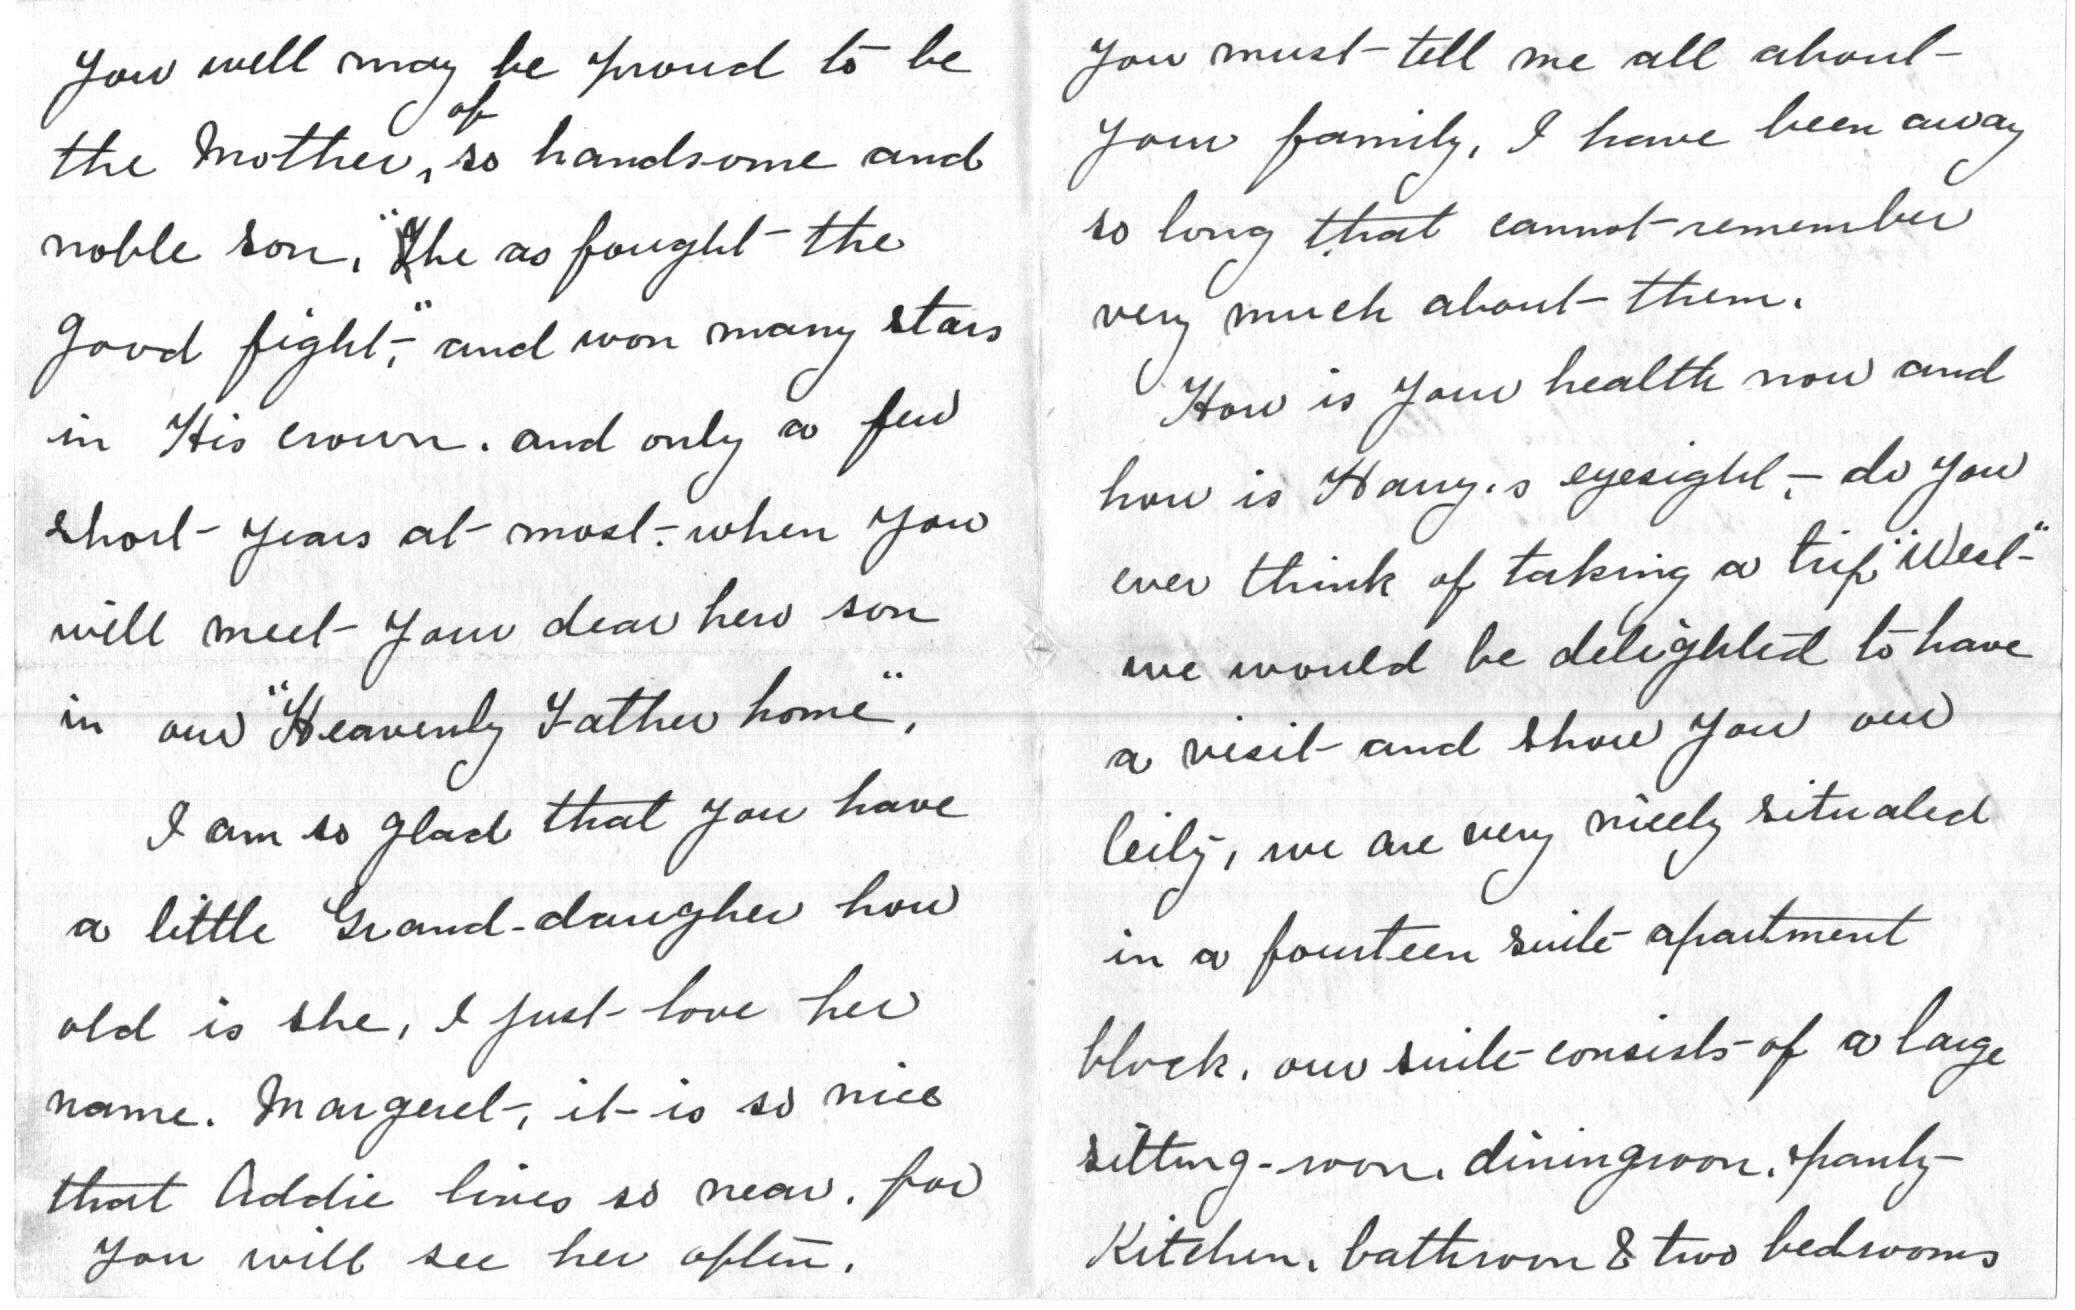 You well may be proud to be
the Mother, of so handsome and
noble son, "he as fought the
good fight," and won many stars
in His crown. and only a few
short years at most, when you
will meet your dear hero son
in our "Heavenly Father home",
I am so glad that you have
a little Grand-daugher how
old is she, I just love her
name. Margeret, it is so nice
that Addie lives so near. for
you will see her often.
You must tell me all about
your family, I have been away
so long that cannot remember
very much about them.
How is your health now and
how is Harry.s eyesight, do you
ever think of taking a trip "West"
we would be delighted to have
a visit and show you our
ceity, we are very nicely situated
in a fourteen suite apartment
block. our suite consists of a large
sitting-roon. diningroon. panty
Kitchen. bathroon & two bedrooms